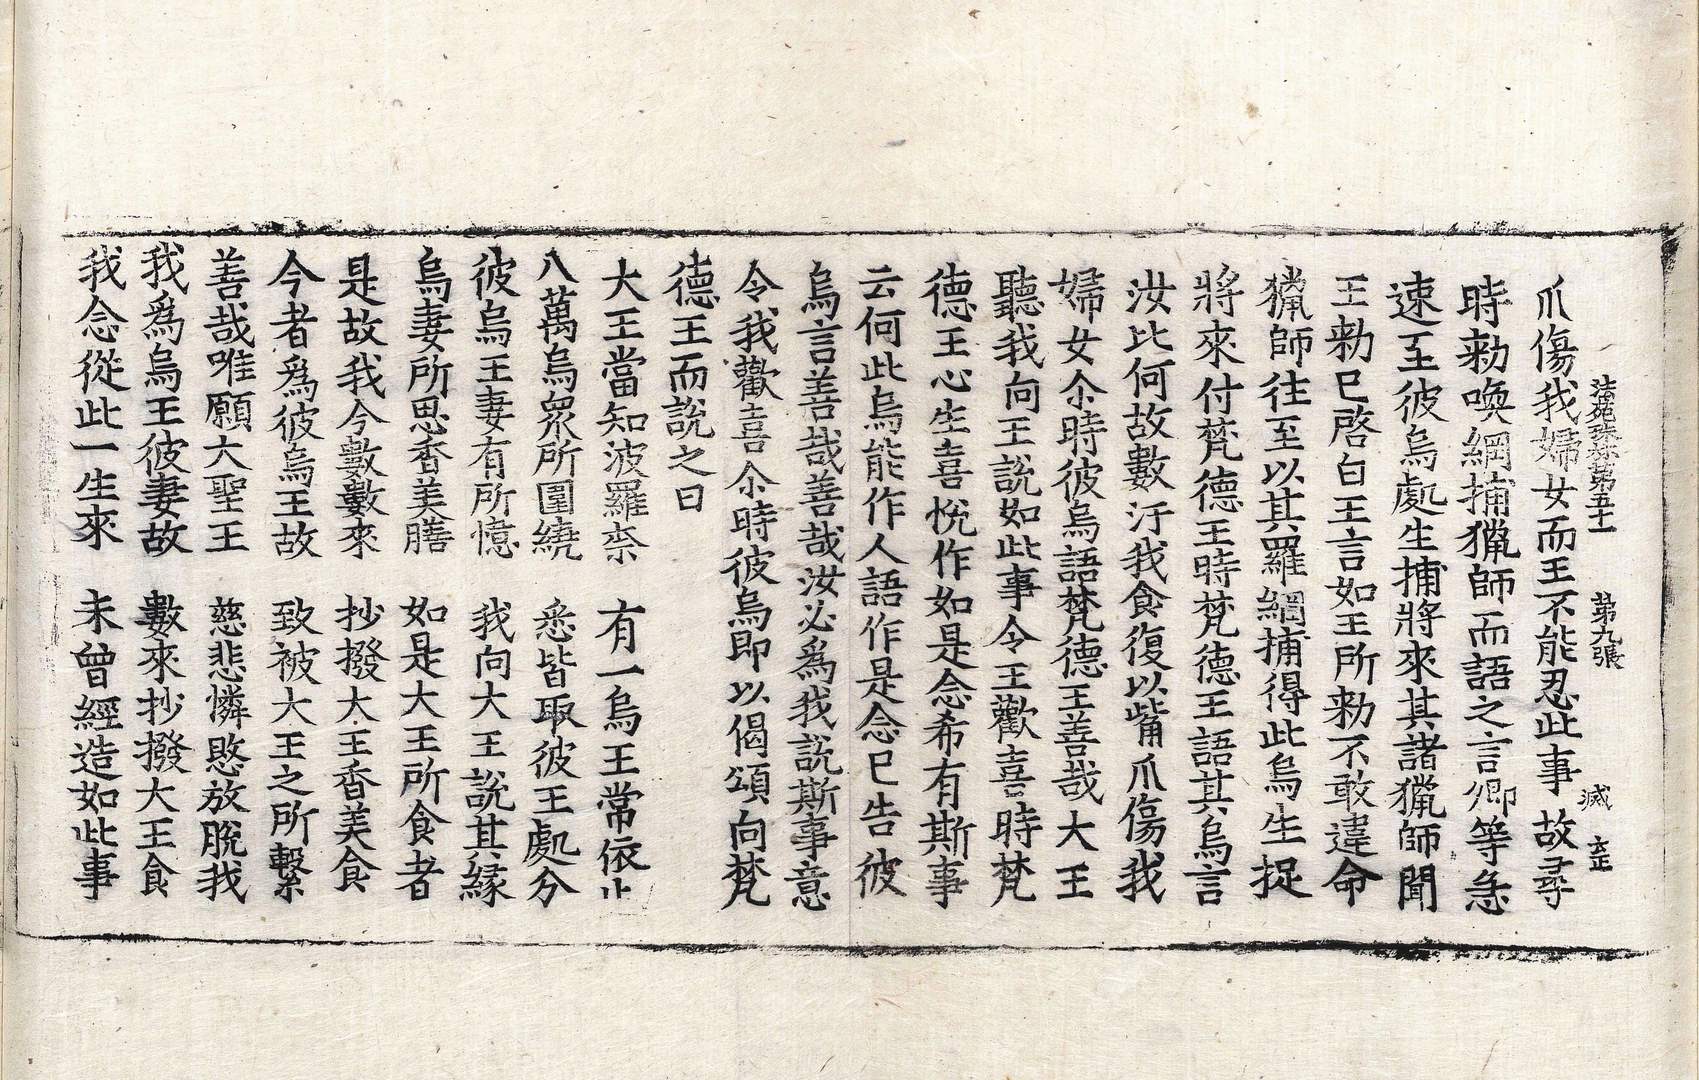 法苑珠林第五十一　第九張　滅
爪傷我婦女而王不能忍此事故尋
時勑喚網捕獵師而語之言卿等急
速至彼烏處生捕將來其諸獵師聞
王勑已啓白王言如王所勑不敢違命
獵師往至以其羅網捕得此烏生捉
將來付梵德王時梵德王語其烏言
汝比何故數汙我食復以觜爪傷我
婦女尒時彼烏語梵德王善哉大王
聽我向王說如此事令王歡喜時梵
德王心生喜悅作如是念希有斯事
云何此烏能作人語作是念已告彼
烏言善哉善哉汝必爲我說斯事意
令我歡喜尒時彼烏即以偈頌向梵
德王而說之曰
大王當知波羅柰　有一烏王常依止
八萬烏眾所圍繞　悉皆取彼王處分
彼烏王妻有所憶　我向大王說其緣
烏妻所思香美膳　如是大王所食者
是故我今數數來　抄撥大王香美食
今者爲彼烏王故　致被大王之所繫
善哉唯願大聖王　慈悲憐愍放脫我
我爲烏王彼妻故　數來抄撥大王食
我念從此一生來　未曾經造如此事